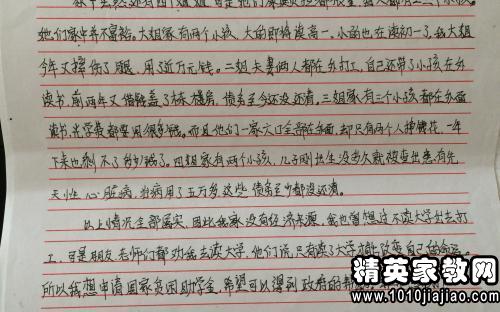 她们家中并不富裕。大姐家有两个小孩、大的即将读高一、小的也在读初一了,我大姐
今年又摔伤了腿,用了近万元钱。二姐夫妻两人都在乡打工,自己还带了小孩在乡
读书,前两年又借钱盖了栋楼房,债务至今还没还清。三姐家有三个小孩都在外面
读书,光学费都要用很多钱。而且他们一家大口全部在外面,却只有两个人挣钱花,一年
下来也剩不了多少钱了。四姐家有两个小孩,儿子刚出生没多久就被查出患有先
天性心脏病,治病用了五万多,这些债务至少都没还清。
以上情况全部属实,因此我家没有经济来源,我也曾想过不读大学出去打
工,可是朋友、老师们都劝我去读大学,他们说,只有读了大学才能改变自己的命运。
所以我想申请国家贫困助学金,希望可以得到政府的帮
精英家教网
www.1010jiajiao.com